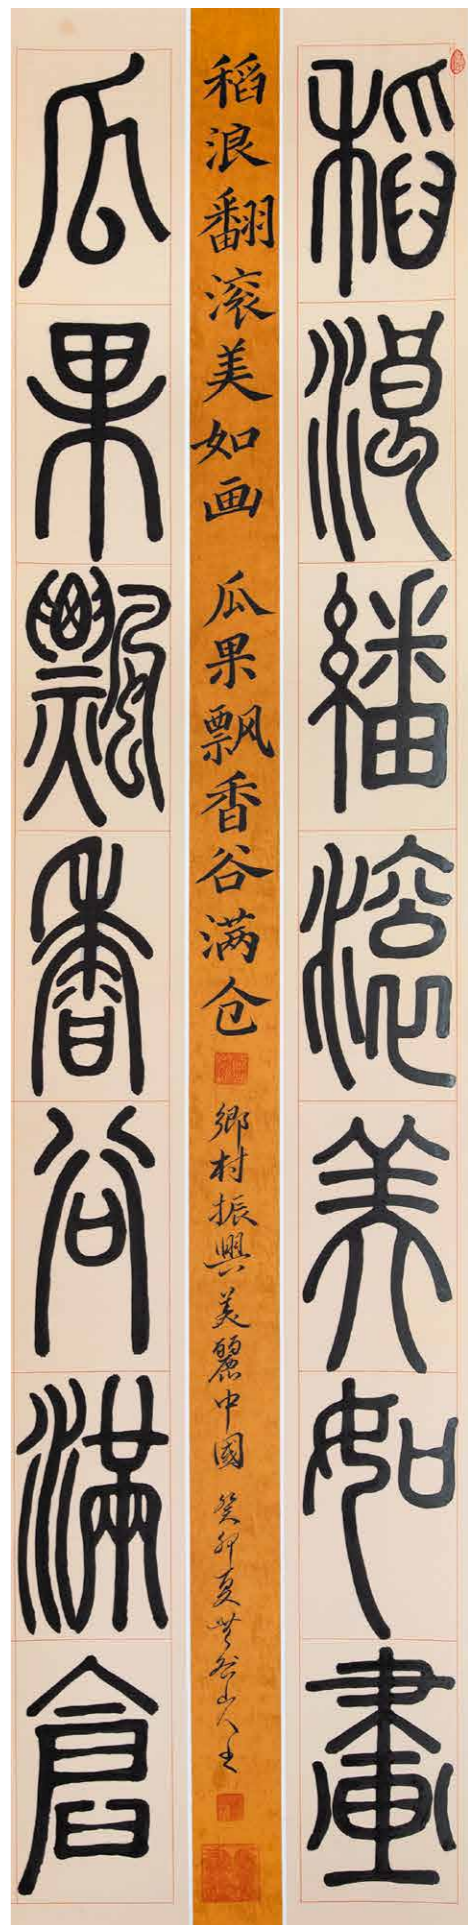 稻浪繙滚美如畫
稻浪翻滚美如画 瓜果飘香谷满仓 鄉村振興美麗中國 癸卯夏
瓜果飄香谷滿倉